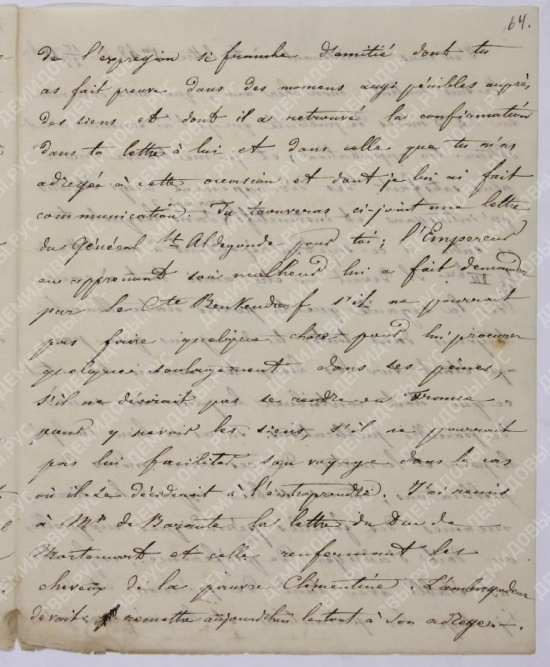 64.
de l'expression si franche d'amitié dont tu
as fait preuve dans des momens aussi pénibles auprès
des siens et dont il a retrouvé la confirmation
dans ta lettre à lui et dans celle que tu m'as
adressée à cette occasion et dont je lui ai fait
communication. Tu trouveras ci-joint une lettre
du Général St. Aldegonde pour toi; l'Empereur
en apprenant son malheur lui a fait demander
par le Cte Benkendorf s'il ne pourrait
pas faire quelque chose pour lui procurer
quelque soulagement dans ses peines,
s'il ne désirait pas se rendre en France
pour y revoir les siens, s'il ne pourrait
pas lui faciliter son voyage dans le cas
où il se déciderait à l'entreprendre. J'ai remis
à Mr de Barante la lettre du Duc de
Mortemart et celle renfermant les
cheveux de la pauvre Clémentine. L'ambassadeur
devait remettre aujourd'hui le tout à son adresse.—.
ДЕМИДОВЫ.РУС